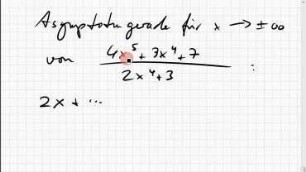 Asymptotengerade für x → ±∞
von (4x⁵ + 3x⁴ + 7)/(2x⁴ + 3) :
2x + ...